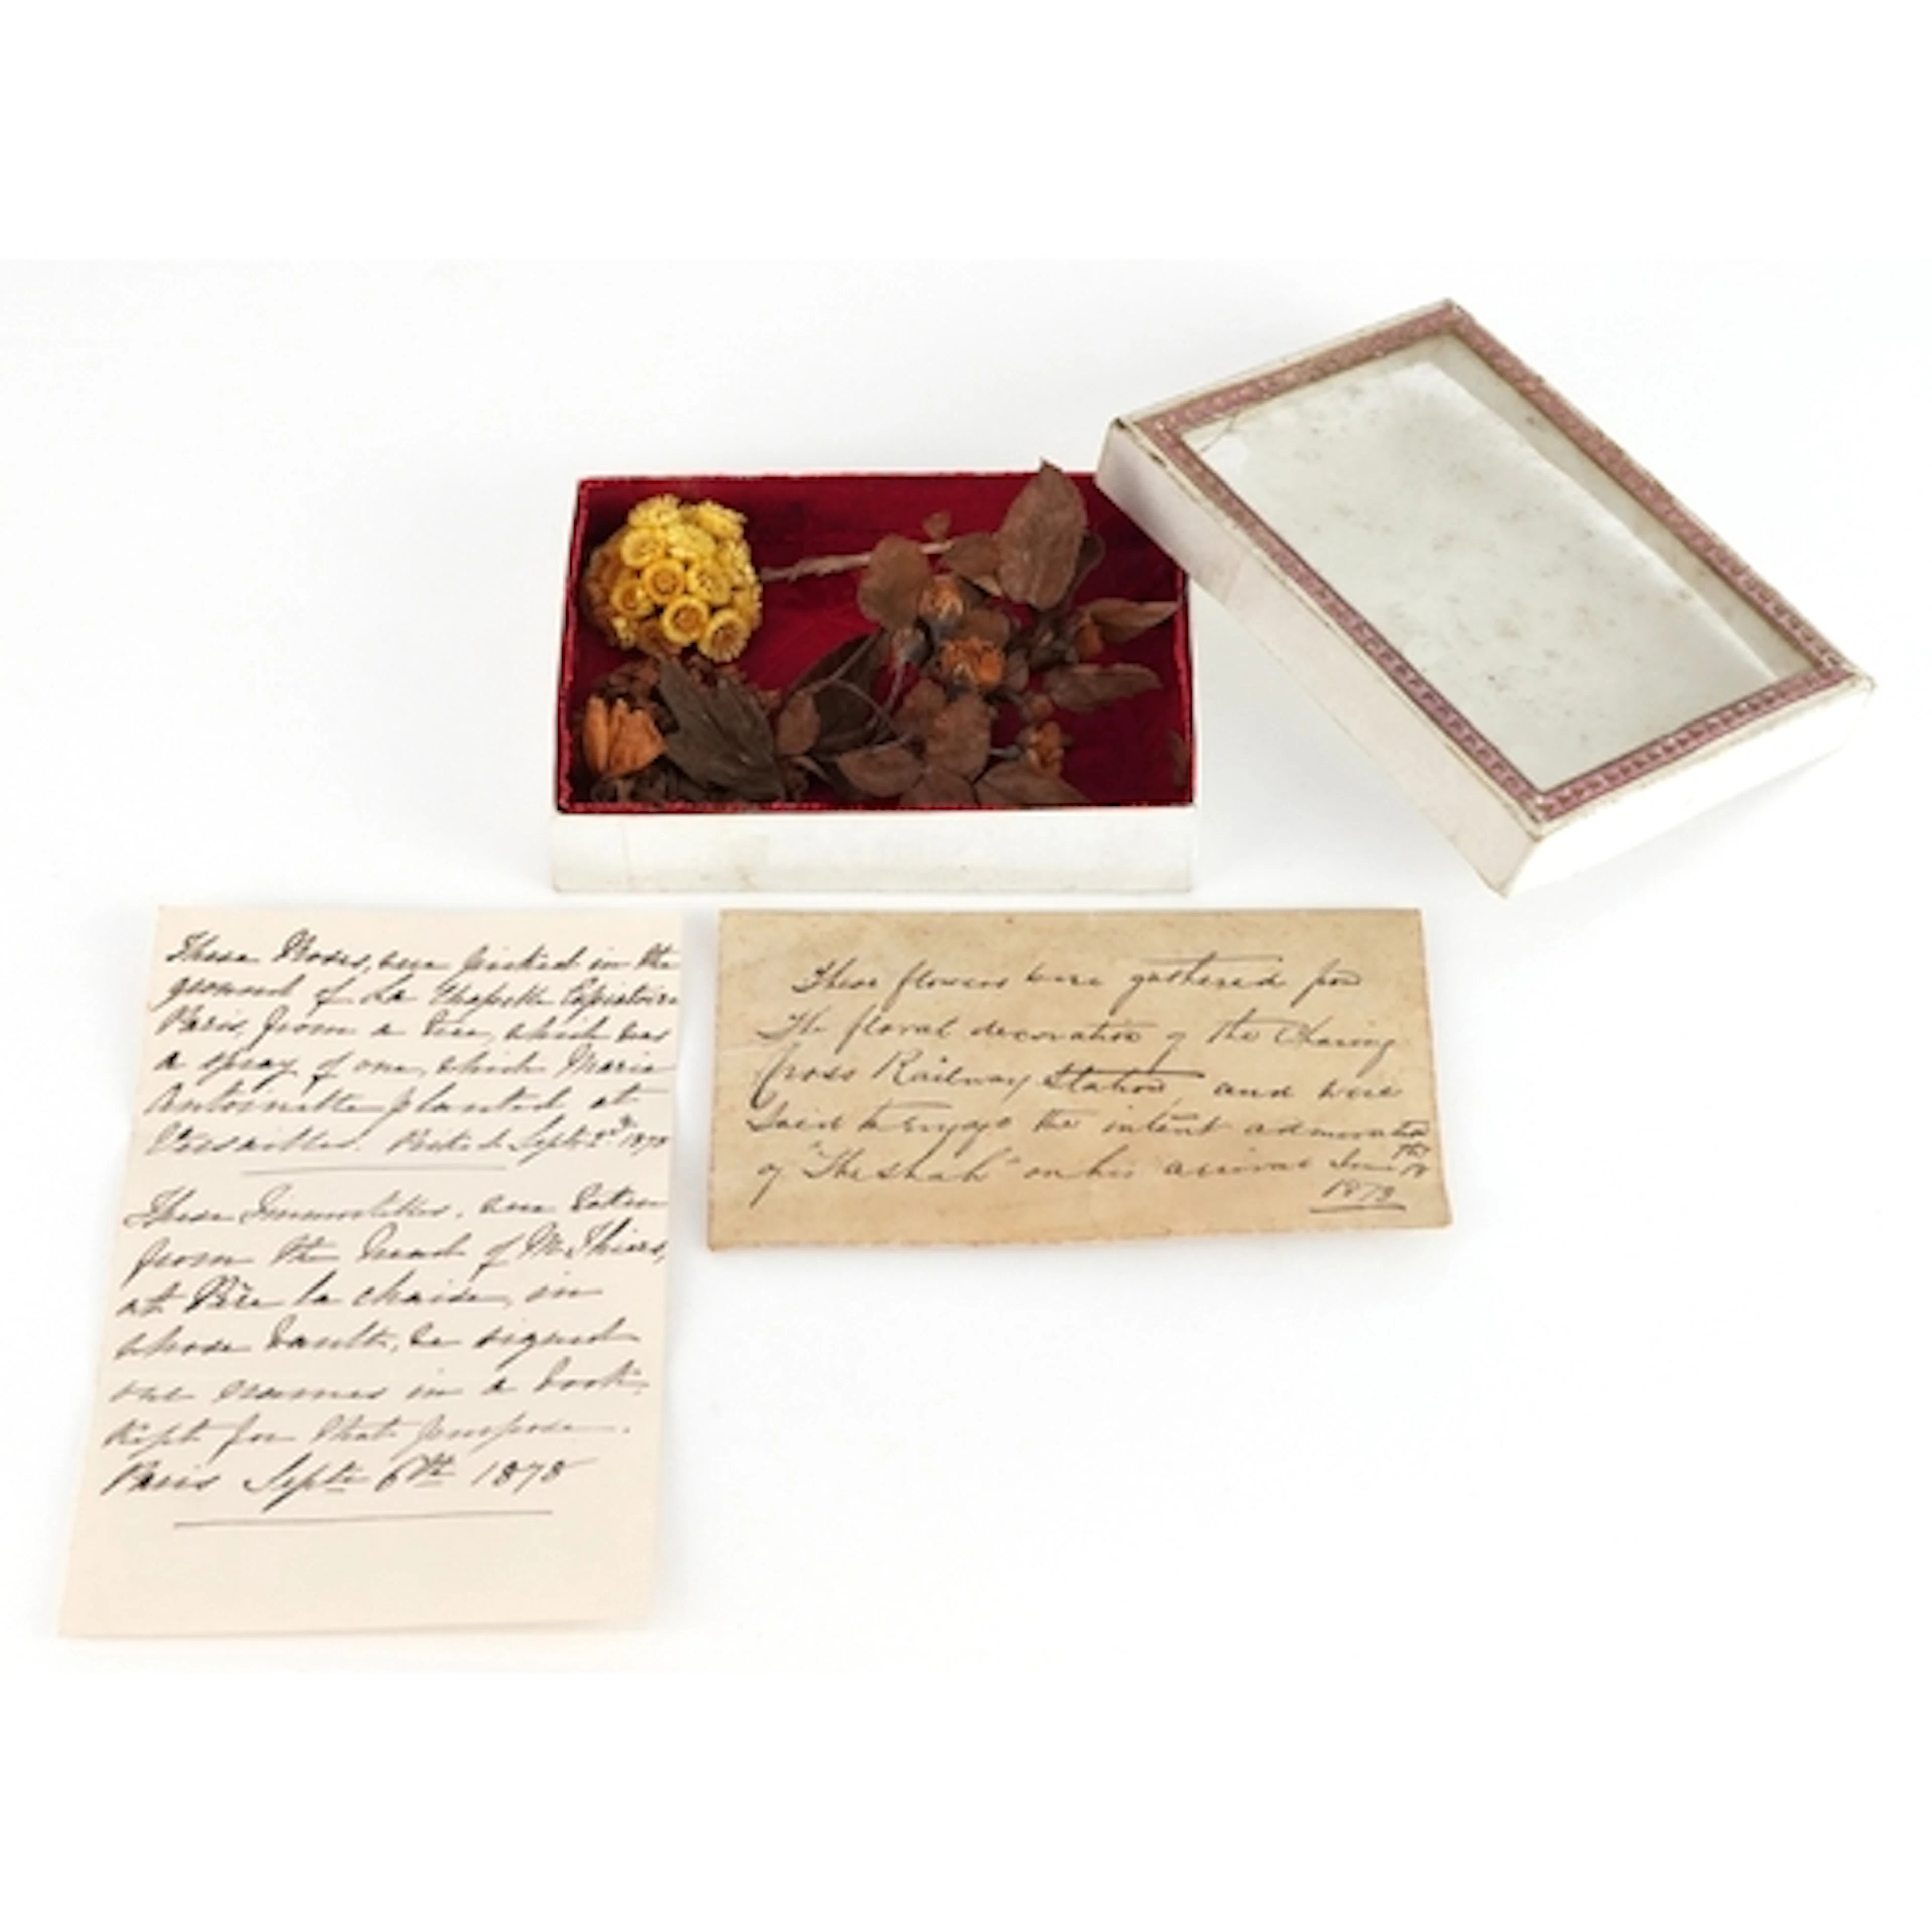 These Roses, were picked in the
ground of La Chapelle Expiatoire
Paris, from a tree, which was
a spray of one, which Marie
Antoinette planted, at
Versailles. Picked Septr 2nd 1878
These Immortelles, were taken
from the of M. Thiers,
at Père la chaise, in
whose Vault, we signed
our names in a book,
kept for that purpose.
Paris Septr 6th 1878
These flowers were gathered from
The floral decoration of the Charing
Cross Railway Station, and were
Said to engage the intent admiration
of "The Shah" on his arrival June the 18
1873